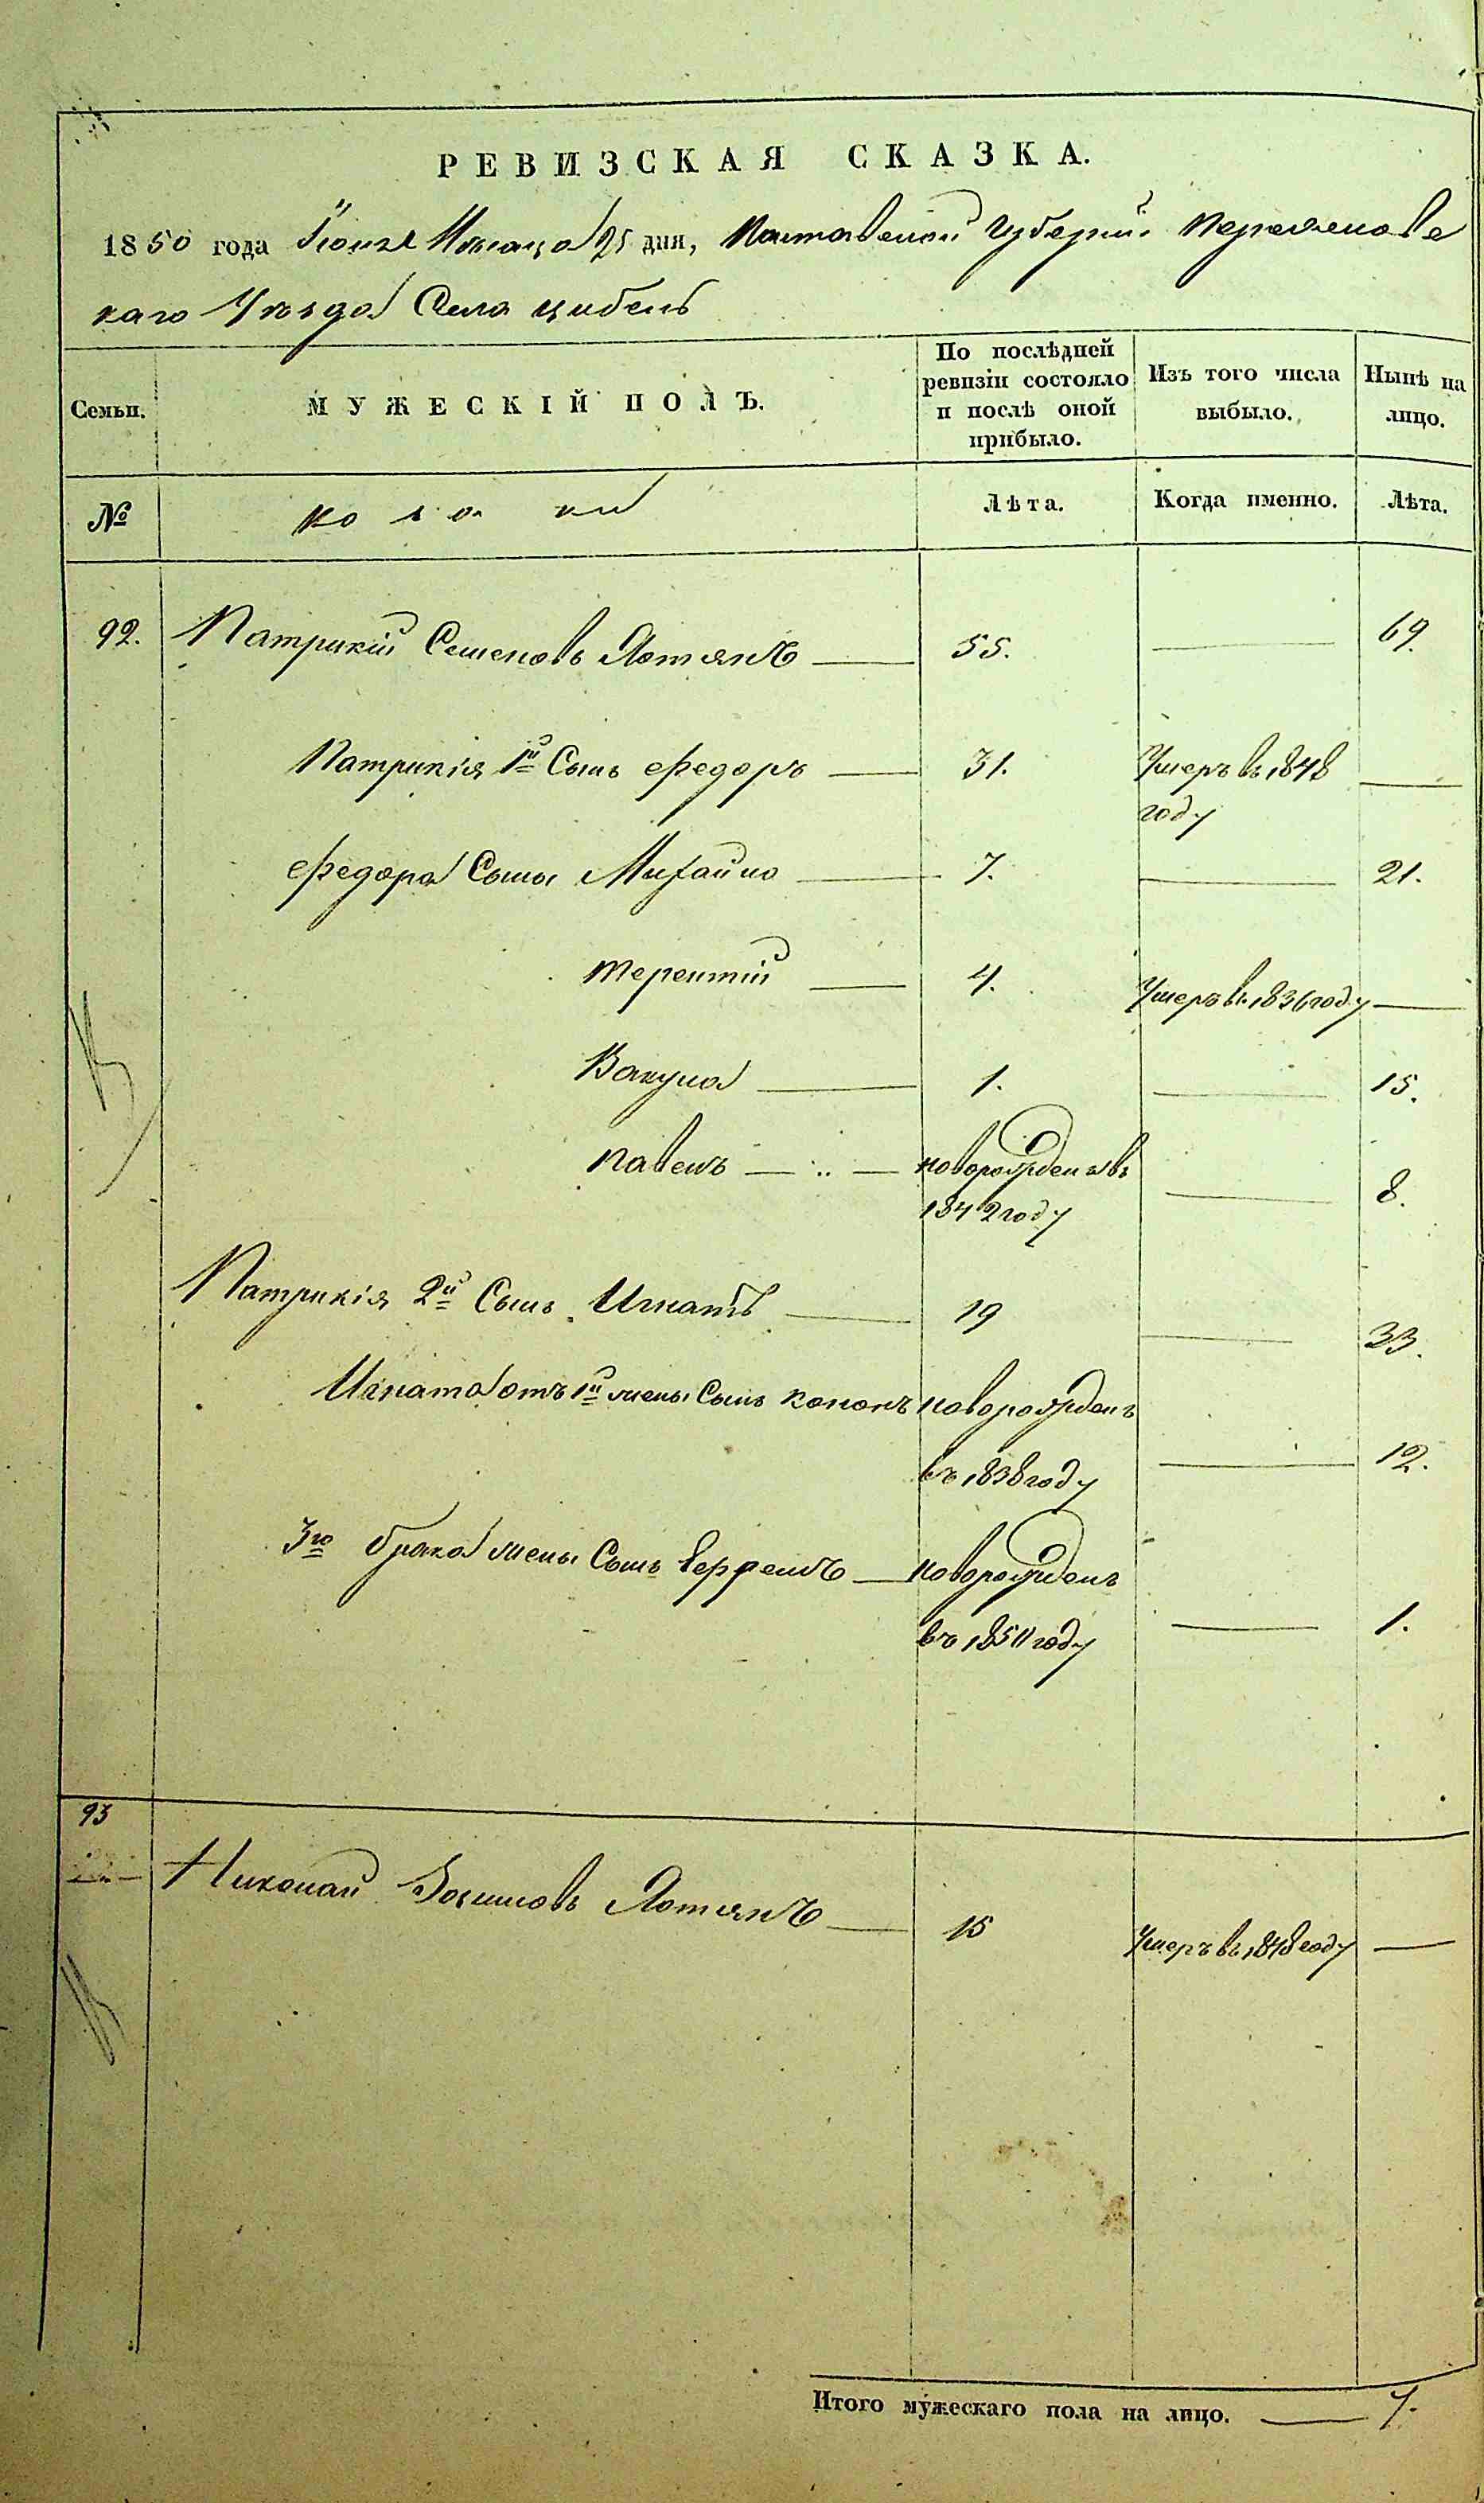 РЕВИЗСКАЯ СКАЗКА.
1850 года Іюня Мѣсяца 25 дня, Полтавской Губерніи Переяслов
скаго Уѣзда Села Цибель
Семьи.
МУЖЕСКІЙ ПОЛЪ.
По послѣдней ревизіи состояло и послѣ оной прибыло.
Изъ того числа выбыло.
Нынѣ на лицо.
№
козаки
Лѣта.
Когда именно.
Лѣта.
92. Патрикій Семеновъ Лотянъ — 55. — 69.
Патрикія 1й Сынъ Федоръ — 31. Умеръ въ 1848 —
году
Федора Сыны Михайло — 7. — 21.
Терентій — 4. Умеръ въ 1836 году —
Вакула — 1. — 15.
Павелъ — новорожденъ въ — 8.
1842 году
Патрикія 2й Сынъ Игнатъ — 19 — 33.
Игната отъ 1й жены Сынъ Кононъ новорожденъ
въ 1838 году — 12.
3го брака жены Сынъ Ефремъ — новорожденъ
въ 1850 году — 1.
93
Николай Зосимовъ Лотянъ — 15 Умеръ въ 1848 году —
Итого мужескаго пола на лицо. — 7.